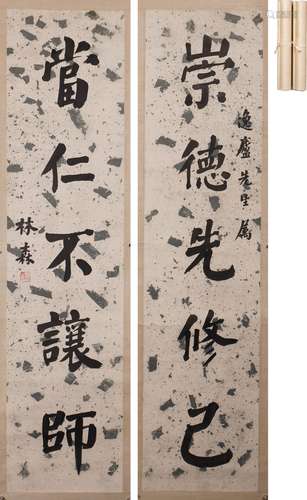 崇德先修己
逸廬先生屬
當仁不讓師
林森